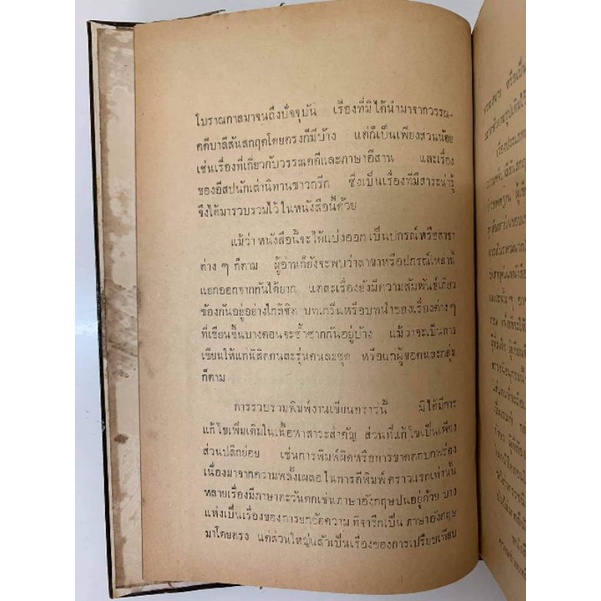 โบราณกาลมาจนถึงปัจจุบัน เรื่องที่มิได้นำมาจากวรรณ-
คดีบาลีสันสกฤตโดยตรงก็มีบ้าง แต่ก็เป็นเพียงส่วนน้อย
เช่นเรื่องที่เกี่ยวกับวรรณคดีและภาษาอีสาน และเรื่อง
ของอีสปนักเล่านิทานชาวกรีก ซึ่งเป็นเรื่องที่มีสาระน่ารู้
จึงได้มารวบรวมไว้ในหนังสือนี้ด้วย
แม้ว่าหนังสือนี้จะได้แบ่งออกเป็นปกรณ์หรือสาขา
ต่าง ๆ ก็ตาม ผู้อ่านก็ยังจะพบว่าสาขาหรือปกรณ์เหล่านี้
แยกออกจากกันได้ยาก แต่ละเรื่องยังมีความสัมพันธ์เกี่ยว
ข้องกันอยู่อย่างใกล้ชิด บทเกริ่นหรือบทนำของเรื่องต่างๆ
ที่เขียนขึ้นบางตอนจะซ้ำซากกันอยู่บ้าง แม้ว่าจะเป็นการ
เขียนให้แก่นิสิตคนละรุ่นคนละชุด หรือแก่ผู้ขอคนละกลุ่ม
ก็ตาม
การรวบรวมพิมพ์งานเขียนคราวนี้ มิได้มีการ
แก้ไขเพิ่มเติมในเนื้อหาสาระสำคัญ ส่วนที่แก้ไขเป็นเพียง
ส่วนปลีกย่อย เช่นการพิมพ์ผิดหรือการขาดตกบกพร่อง
เนื่องมาจากความพลั้งเผลอในการตีพิมพ์คราวแรกเท่านั้น
หลายเรื่องมีภาษาตะวันตกเช่นภาษาอังกฤษปนอยู่ด้วย บาง
แห่งเป็นเรื่องของการยกข้อความที่จารึกเป็นภาษาอังกฤษ
มาโดยตรง แต่ส่วนใหญ่แล้วเป็นเรื่องของการเปรียบเทียบ